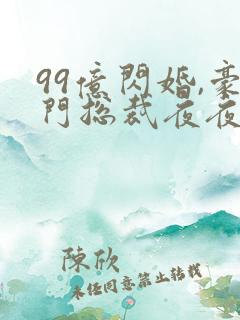 99億閃婚,豪
門總裁夜夜
陳欣
未經同意禁止轉載